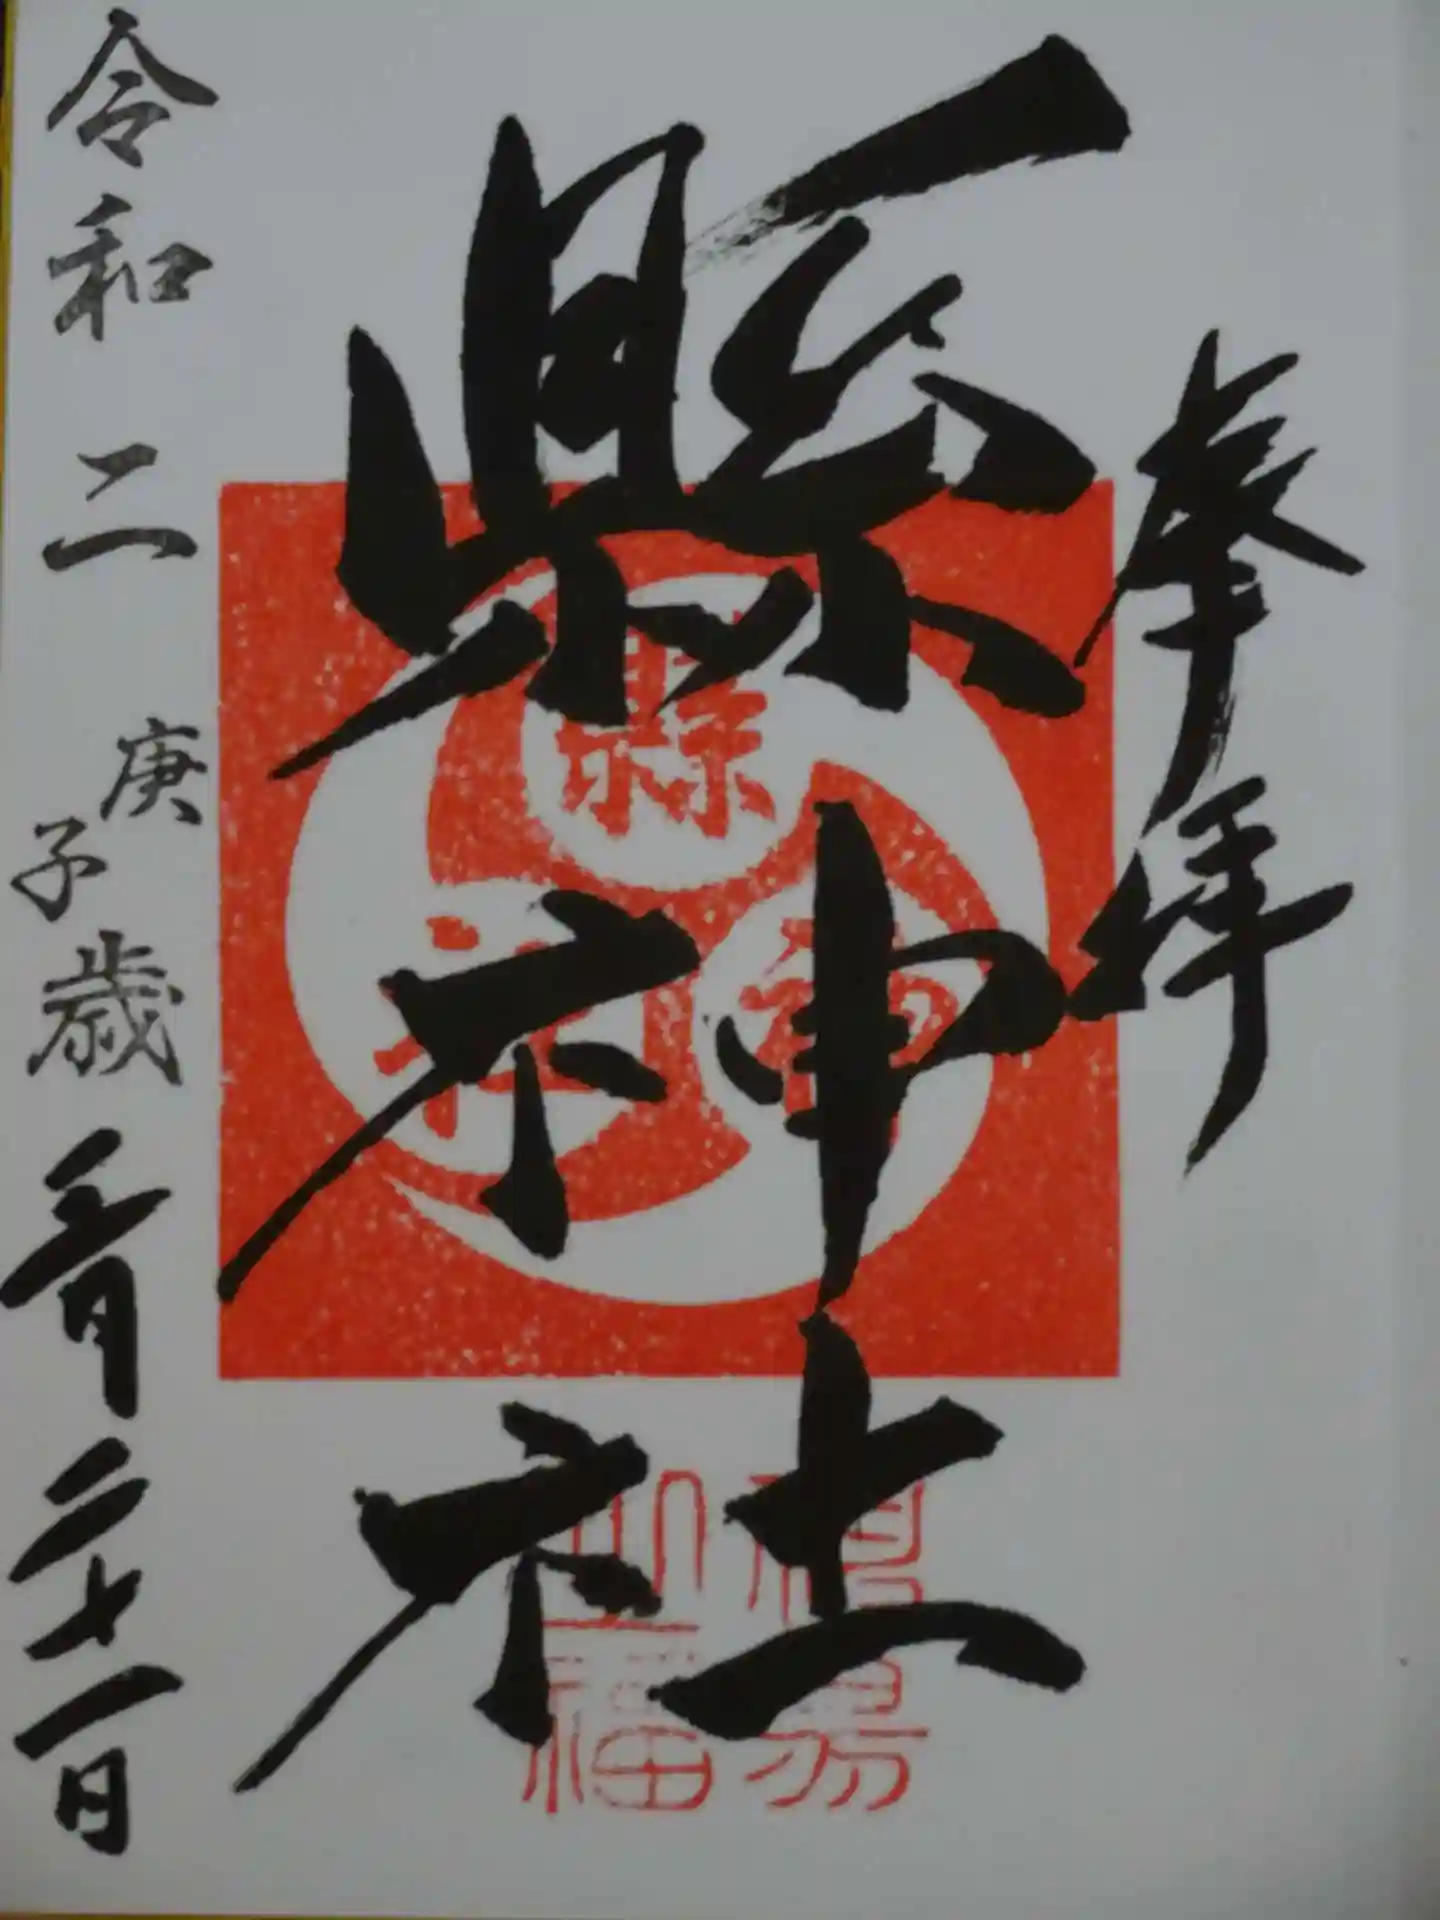 奉拝
縣神社
令和二庚子歳月二十一日
縣神社